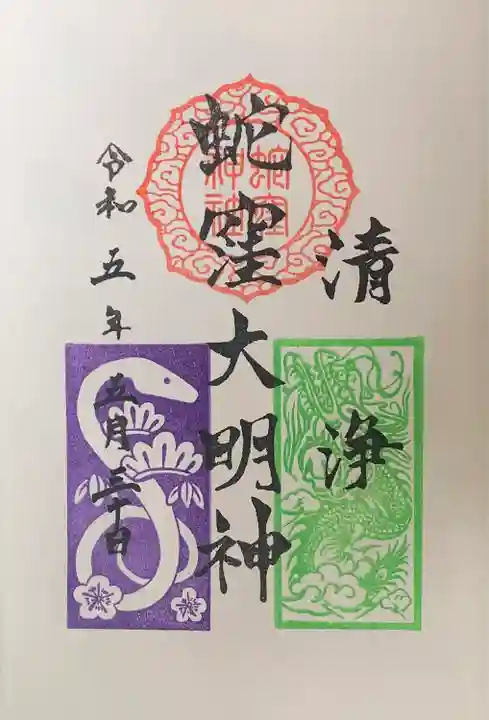 清浄
蛇窪大明神
令和五年五月三十日
蛇窪
神社